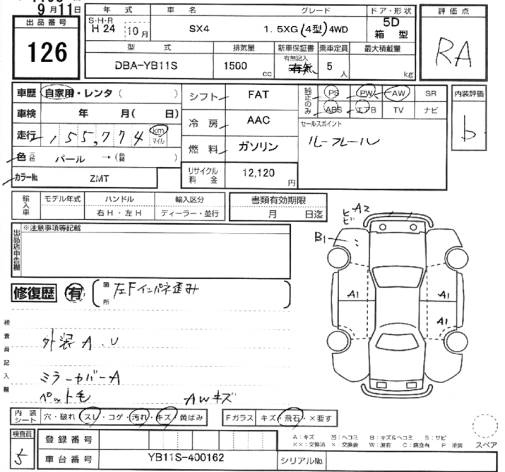 9月11日
出品番号
126
年式
車名
グレード
ドア・形状
評価点
S・H・R
H 24 10月
SX4
1.5XG (4型) 4WD
5D
箱型
RA
型式
排気量
新車保証書
乗車定員
最大積載量
DBA-YB11S
1500 cc
有無記入
有・無
5
人
kg
車歴 自家用・レンタ ( )
シフト FAT
PS PW AW SR
ABS エアB TV ナビ
内装評価
b
車検 年 月 ( 日)
冷房 AAC
セールスポイント
ルーフレール
走行 155,774 km マイル
燃料 ガソリン
色 パール → ( )
リサイクル料金
12,120 円
カラーNo. ZMT
輸入車
モデル年式
ハンドル
輸入区分
書類有効期限
右H・左H
ディーラー・並行
月 日迄
ヒビ A2
B1
A1 A1
※注意事項等記載
出品店申告欄
修復歴 有
箇所
左Fインパネ歪み
検査員記入欄
外装 A.U
ミラーカバーA
ペット毛 AWキズ
内装シート
穴・破れ スレ・コゲ・汚れ・キズ・黄ばみ
Fガラス
キズ・飛石・×要す
検査員
5
登録番号
車台番号
YB11S-400162
シリアルNo.
A:キズ U:ヘコミ B:キズ&ヘコミ S:サビ
スペア